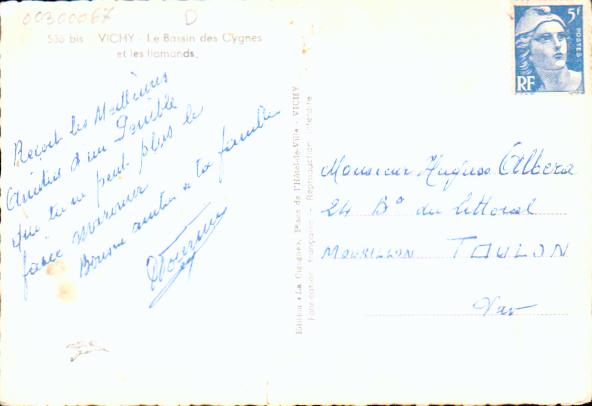 00300067 D
536 bis VICHY - Le Bassin des Cygnes
et les flamands
Reçoit les Meilleures
Amitiés d'un Pénible
que tu ne peut plus le
faire
Bonne à ta famille
Edition « La Cigogne, Place de l'Hôtel-de-Ville - VICHY
Fabrication française - Reproduction interdite
5f
POSTES
RF
Monsieur Hugues Albera
24 Bd du littoral
MOURILLON TOULON
Var